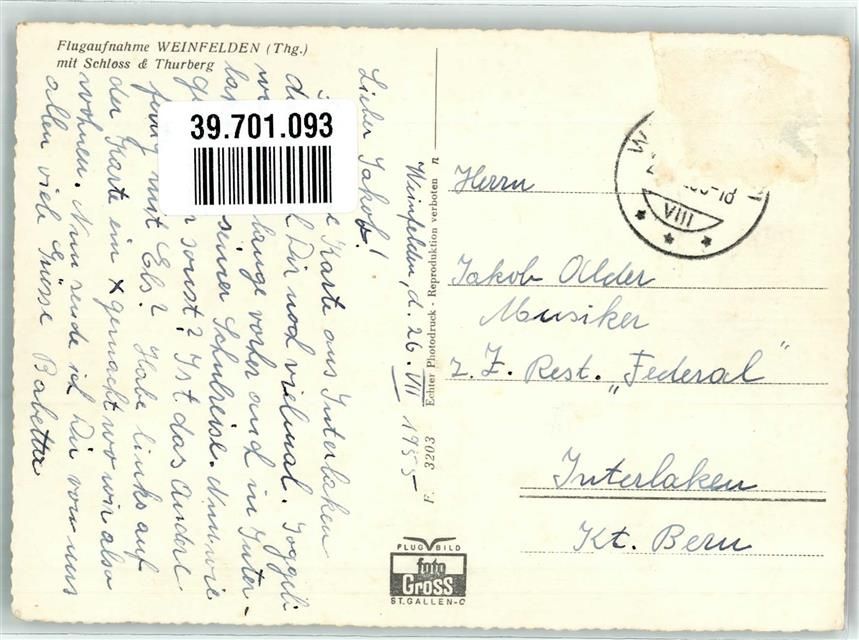 Flugaufnahme WEINFELDEN (Thg.)
mit Schloss & Thurberg
39.701.093
Weinfelden, d. 26. VII 1955
Lieber Jakob!
Karte aus Interlaken
Dir noch vielmal. Joggeli
lange vorher and in Inter-
seiner Schulreise. Nun wie
sonst? Ist das Andere
fertig mit Els? Habe links auf
der Karte ein x gemacht wo wir also
wohnen. Nun sende ich Dir von uns
allen viele Grüsse Babetta
F. 3203 Echter Photodruck - Reproduktion verboten n
Herrn
Jakob Alder
Musiker
z. Z. Rest. „Federal"
Interlaken
Kt. Bern
VIII
FLUGBILD
foto
Gross
ST. GALLEN-O